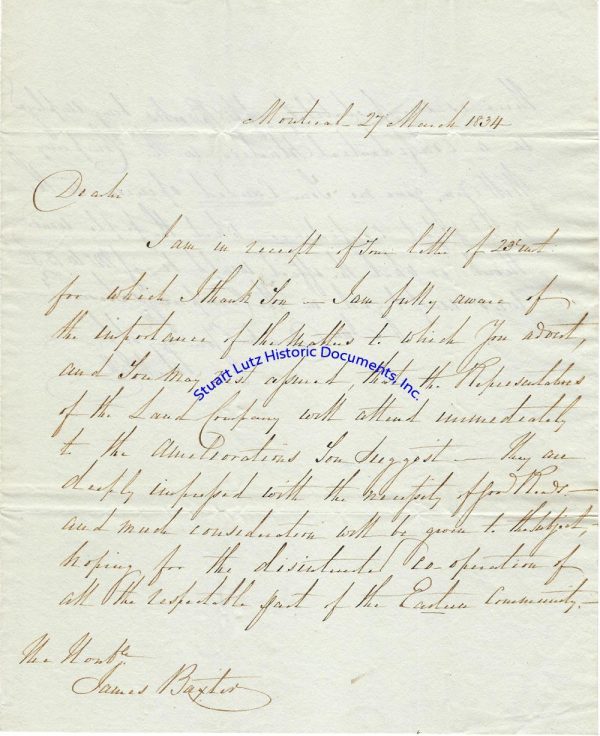 Montreal 27 March 1834
Dear Sir
I am in receipt of Your letter of 23d inst.
for which I thank You — I am fully aware of
the importance of the Matters to which You advert,
and You may rest assured that the Representatives
of the Land Company will attend immediately
to the Ameliorations You suggest — They are
deeply impressed with the necessity of good Roads —
and much consideration will be given to the subject,
hoping for the disinterested co-operation of
all the respectable part of the Eastern Community. —
The Honble
James Baxter
Stuart Lutz Historic Documents, Inc.